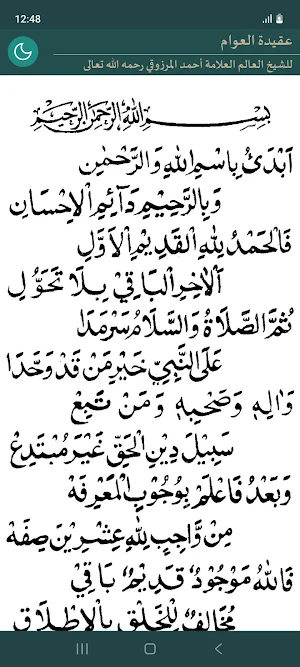 12:48
عقيدة العوام
للشيخ العالم العلامة أحمد المرزوقي رحمه الله تعالى
بِسْمِ اللهِ الرَّحْمٰنِ الرَّحِيْمِ
اَبْدَئُ بِاسْمِ اللهِ وَالرَّحْمٰنِ
وَبِالرَّحِيْمِ دَآئِمِ الْاِحْسَانِ
فَالْحَمْدُ لِلّٰهِ الْقَدِيْمِ الْاَوَّلِ
اَلْاٰخِرِ الْبَاقِيْ بِلَا تَحَوُّلِ
ثُمَّ الصَّلَاةُ وَالسَّلَامُ سَرْمَدَا
عَلَى النَّبِيِّ خَيْرِ مَنْ قَدْ وَحَّدَا
وَاٰلِهِ وَصَحْبِهِ وَمَنْ تَبِعْ
سَبِيْلَ دِيْنِ الْحَقِّ غَيْرَ مُبْتَدِعْ
وَبَعْدُ فَاعْلَمْ بِوُجُوْبِ الْمَعْرِفَهْ
مِنْ وَّاجِبٍ لِلّٰهِ عِشْرِيْنَ صِفَهْ
فَاللهُ مَوْجُوْدٌ قَدِيْمٌ بَاقِيْ
مُخَالِفٌ لِلْخَلْقِ بِالْاِطْلَاقِ